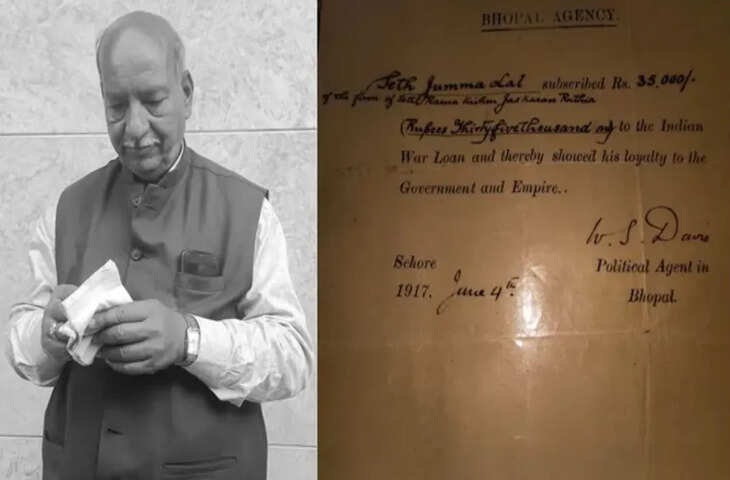 BHOPAL AGENCY.
Seth Jumma Lal subscribed Rs. 35,000/-
of the firm of Seth Rama Kishen Jaskaran Ruthia
(Rupees Thirty five thousand only) to the Indian
War Loan and thereby showed his loyalty to the
Government and Empire..
W. S. Davis
Sehore
Political Agent in
1917. June 4th.
Bhopal.